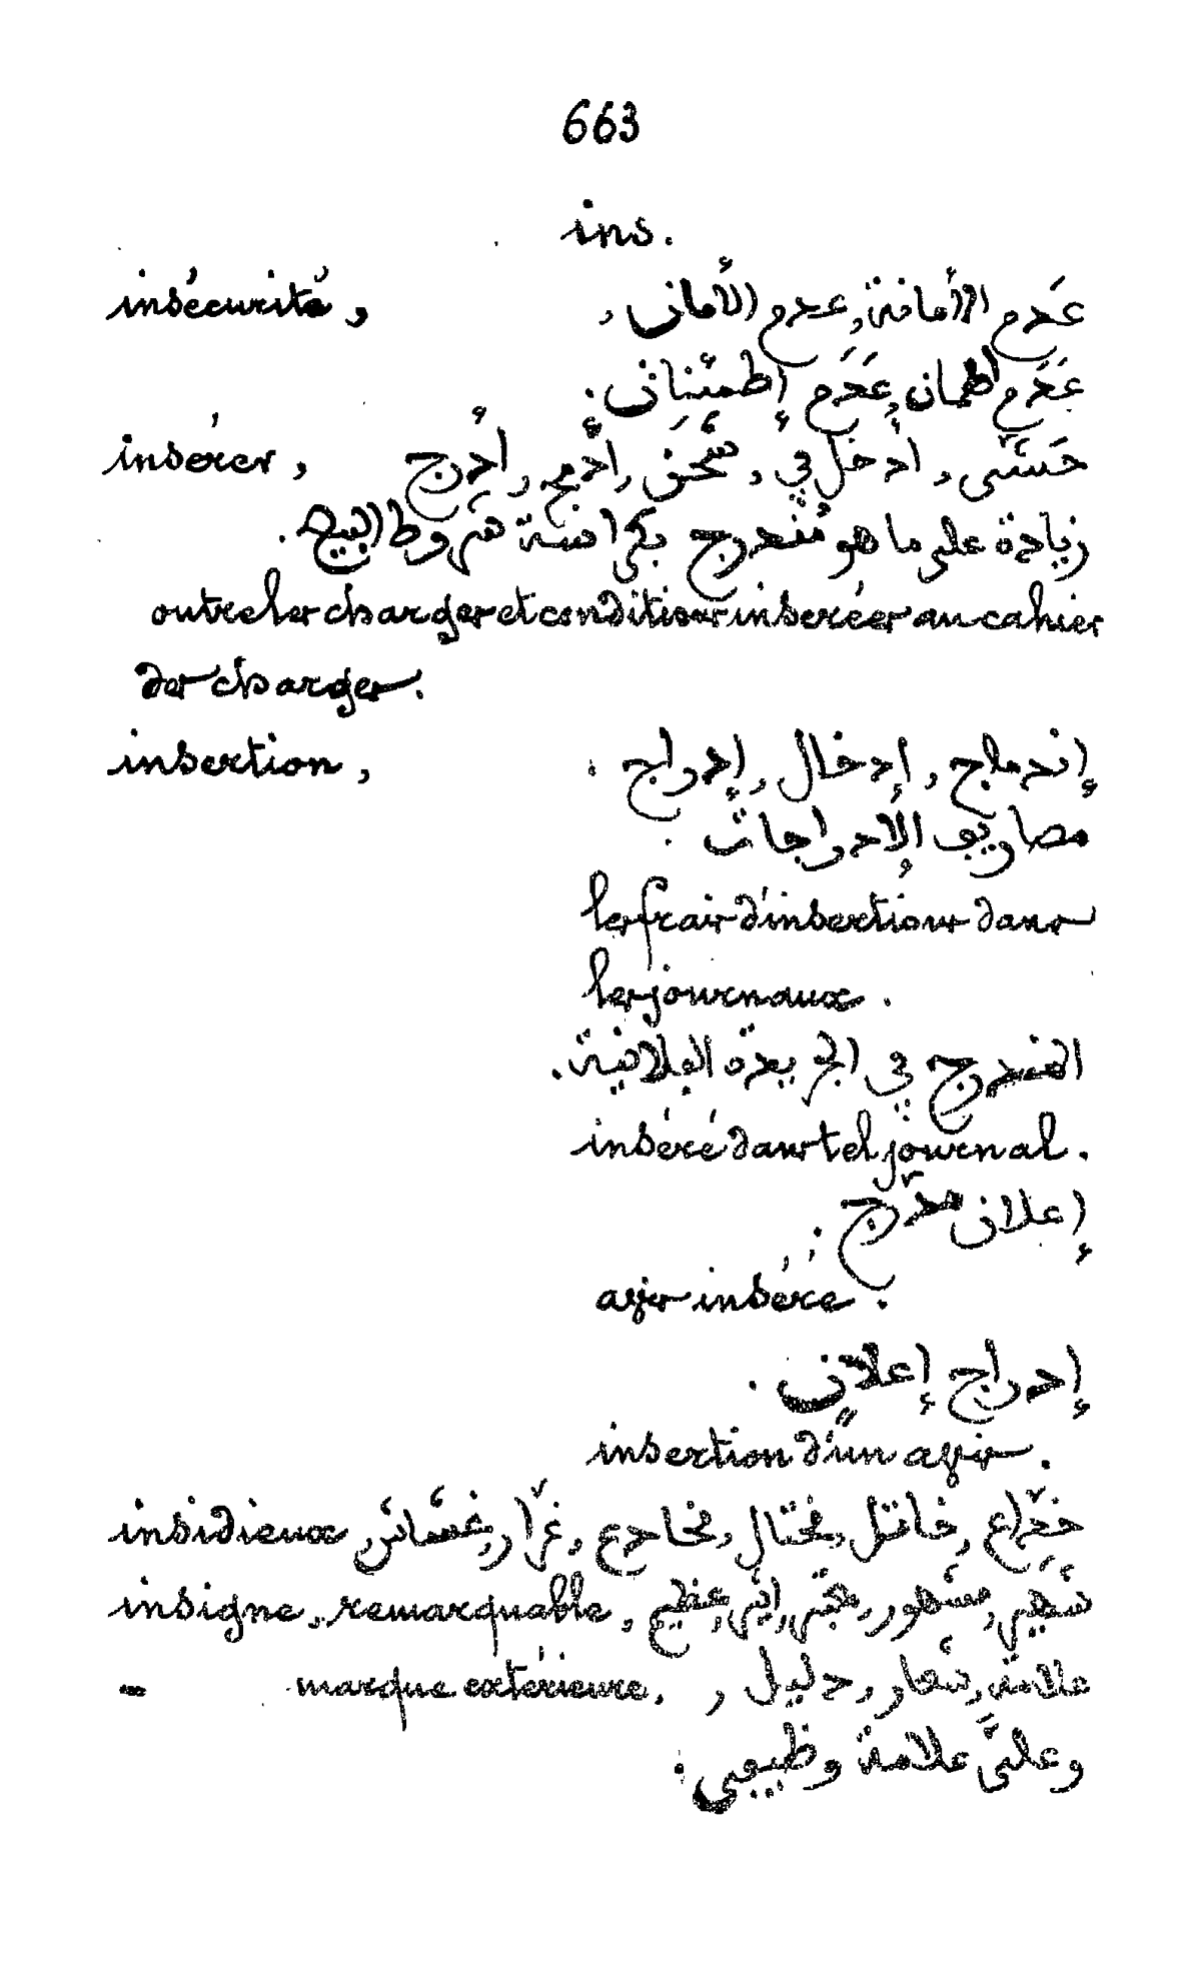 663
ins.
insécurité, عَدَم الأمانة, عدم الأمان,
عَدَم اطمان, عَدَم إطمئنان.
insérer, حَشَّى, أدخل في, شَحَن, أدْمج, أدرج
زيادة على ما هو مُندرج بكراسة شروط البيع.
outre les charges et conditions insérées au cahier
des charges.
insertion, إندماج, إدخال, إدراج.
مصاريف الإدراجات.
les frais d'insertions dans
les journaux.
المندرج في الجريدة الفلانية.
inséré dans tel journal.
إعلان مدرّج.
avis inséré.
إدراج إعلانٍ.
insertion d'un avis.
insidieux خدّاع, خاتل, مختال, مخادع, غرّار, غشّاش
insigne, remarquable, شهير, مشهور, عظيم
- marque extérieure, علامة, شعار, دليل,
علامة وظيفي.